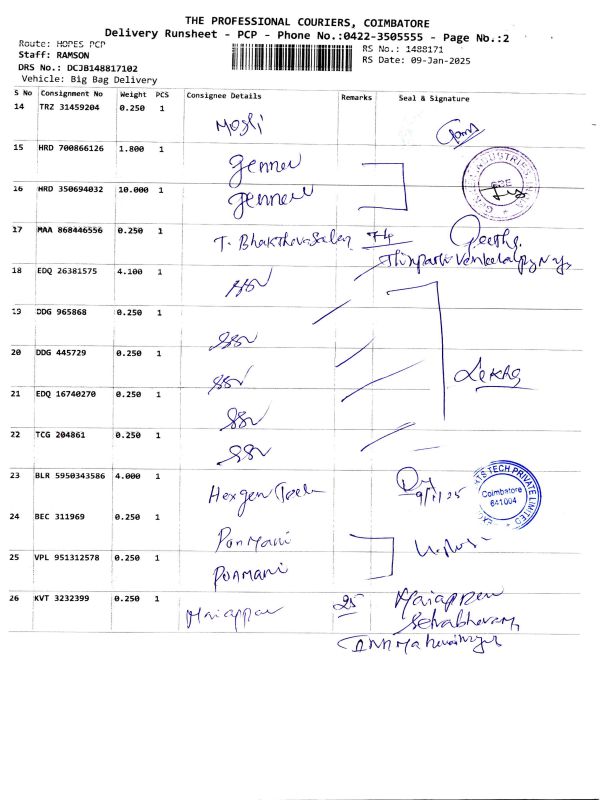 THE PROFESSIONAL COURIERS, COIMBATORE
Delivery Runsheet - PCP - Phone No.:0422-3505555 - Page No.:2
Route: HOPES PCP
RS No.: 1488171
Staff: RAMSON
RS Date: 09-Jan-2025
DRS No.: DCJB148817102
Vehicle: Big Bag Delivery
S No Consignment No Weight PCS Consignee Details Remarks Seal & Signature
14 TRZ 31459204 0.250 1 Mogli
15 HRD 700866126 1.800 1 Gemmer
16 HRD 350694032 10.000 1 Gemmer
17 MAA 868446556 0.250 1 T. 74 Geetha
18 EDQ 26381575 4.100 1 SSV
19 DDG 965868 0.250 1 SSV
20 DDG 445729 0.250 1 SSV
21 EDQ 16740270 0.250 1 SSV
Lekha
22 TCG 204861 0.250 1 SSV
23 BLR 5950343586 4.000 1 Hexgen Tech 9/1/25
TECH PRIVATE LIMITED
Coimbatore
641004
24 BEC 311969 0.250 1 Ponmani
25 VPL 951312578 0.250 1 Ponmani
26 KVT 3232399 0.250 1 Maiappan 25 Maiappan